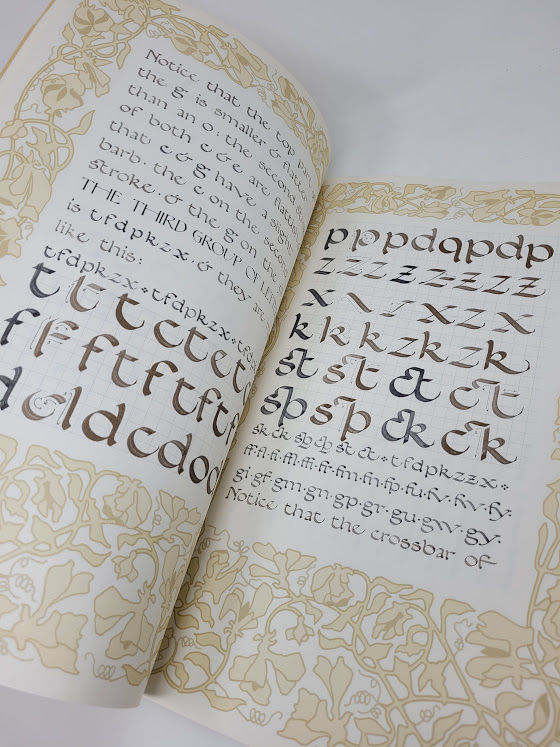 Notice that the top
the g is smaller & flatte
than an o: the second
of both c & e are flat
that c & g have a sligh
barb. the e on the seco
stroke. & the g on the
THE THIRD GROUP OF LET
is t f d p k z x · & they are
like this:
t f d p k z x · t f d p k z x · t f d
t t t c t e t
f f f t f t f t f
d c l d c d o c
p p p p d q p d p
z z z z z z z z
x x z x
k k k z k z k
st st ct ct
sp sp ck ck
sk ck sp cp st ct · t f d p k z z x
ff·fl·fi·ffl·ffi·fr·fm·fn·fp·fu·fv·fw·fy·
gi·gf·gm·gn·gp·gr·gu·gw·gy·
Notice that the crossbar of